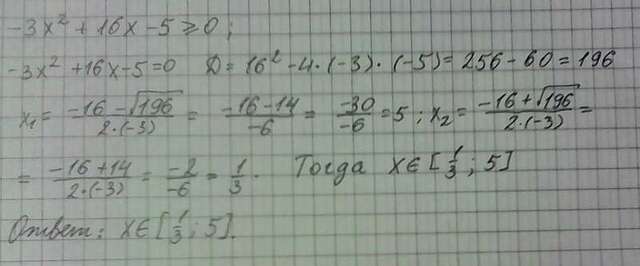 -3x² + 16x - 5 ≥ 0;
-3x² + 16x - 5 = 0 D = 16² - 4·(-3)·(-5) = 256 - 60 = 196
x₁ = (-16 - √196)/(2·(-3)) = (-16 - 14)/(-6) = (-30)/(-6) = 5; x₂ = (-16 + √196)/(2·(-3)) =
= (-16 + 14)/(2·(-3)) = (-2)/(-6) = 1/3. Тогда x∈[1/3; 5]
Ответ: x∈[1/3; 5].